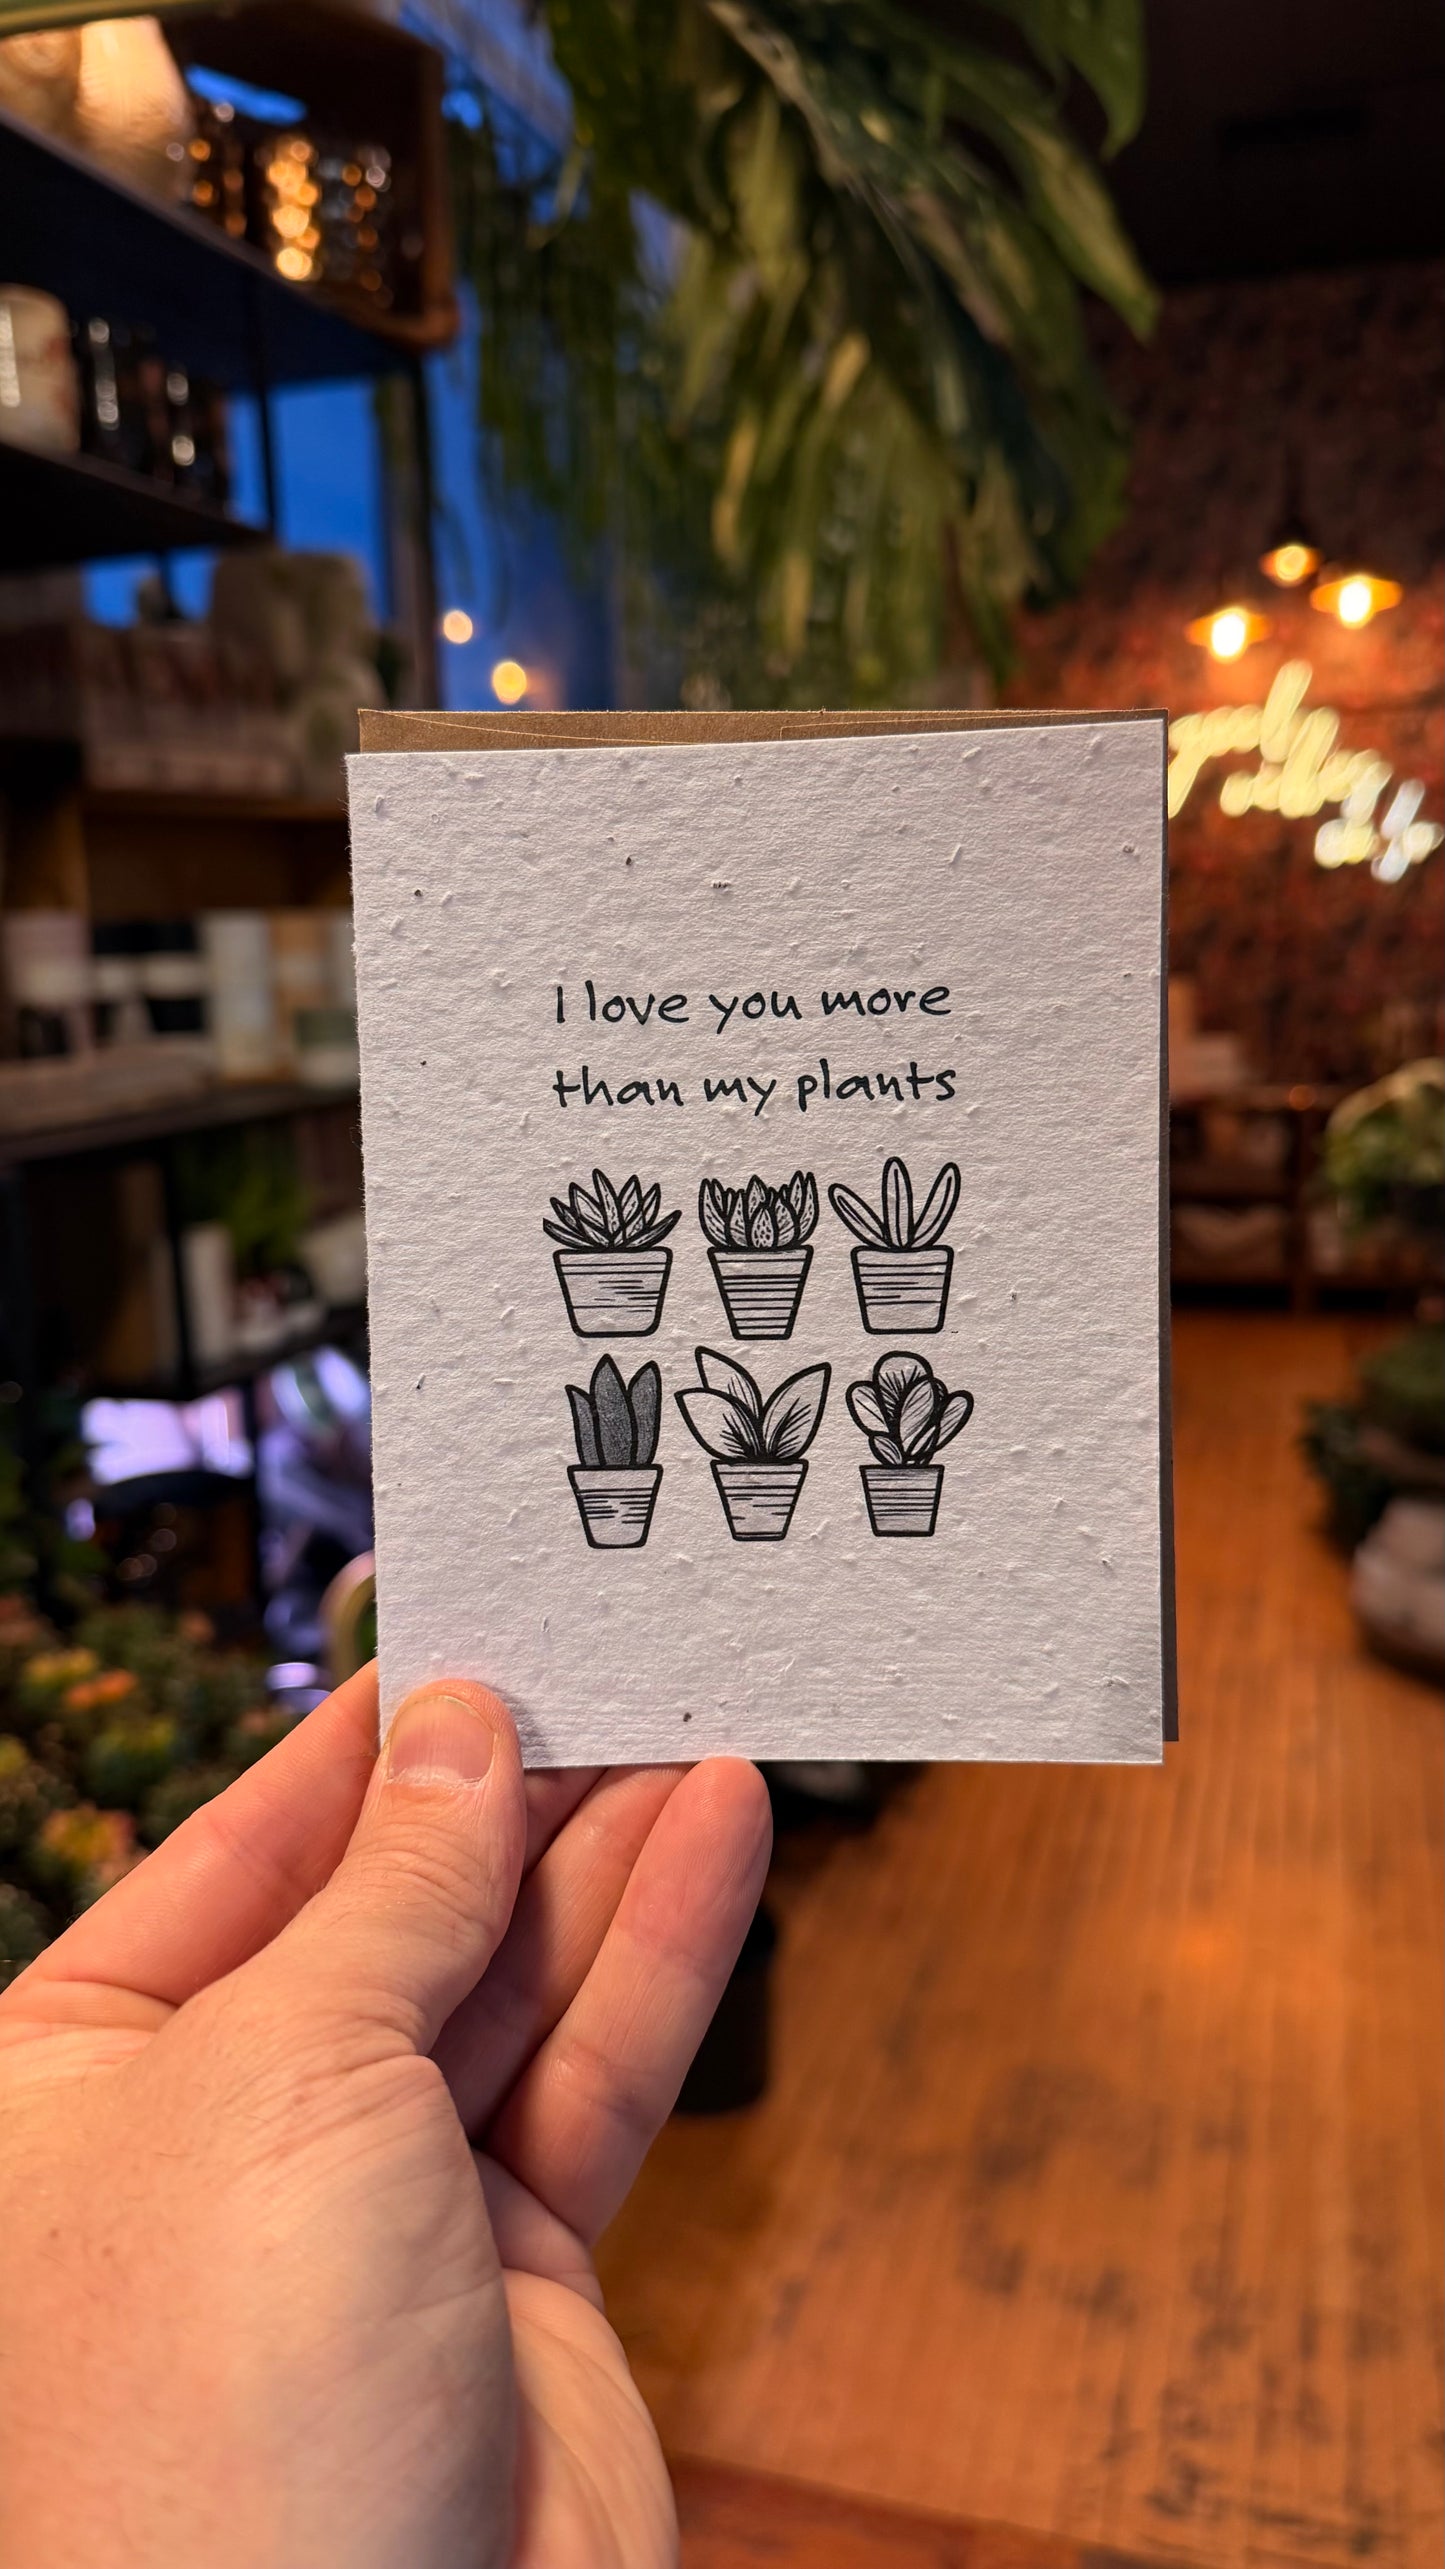 I love you more
than my plants